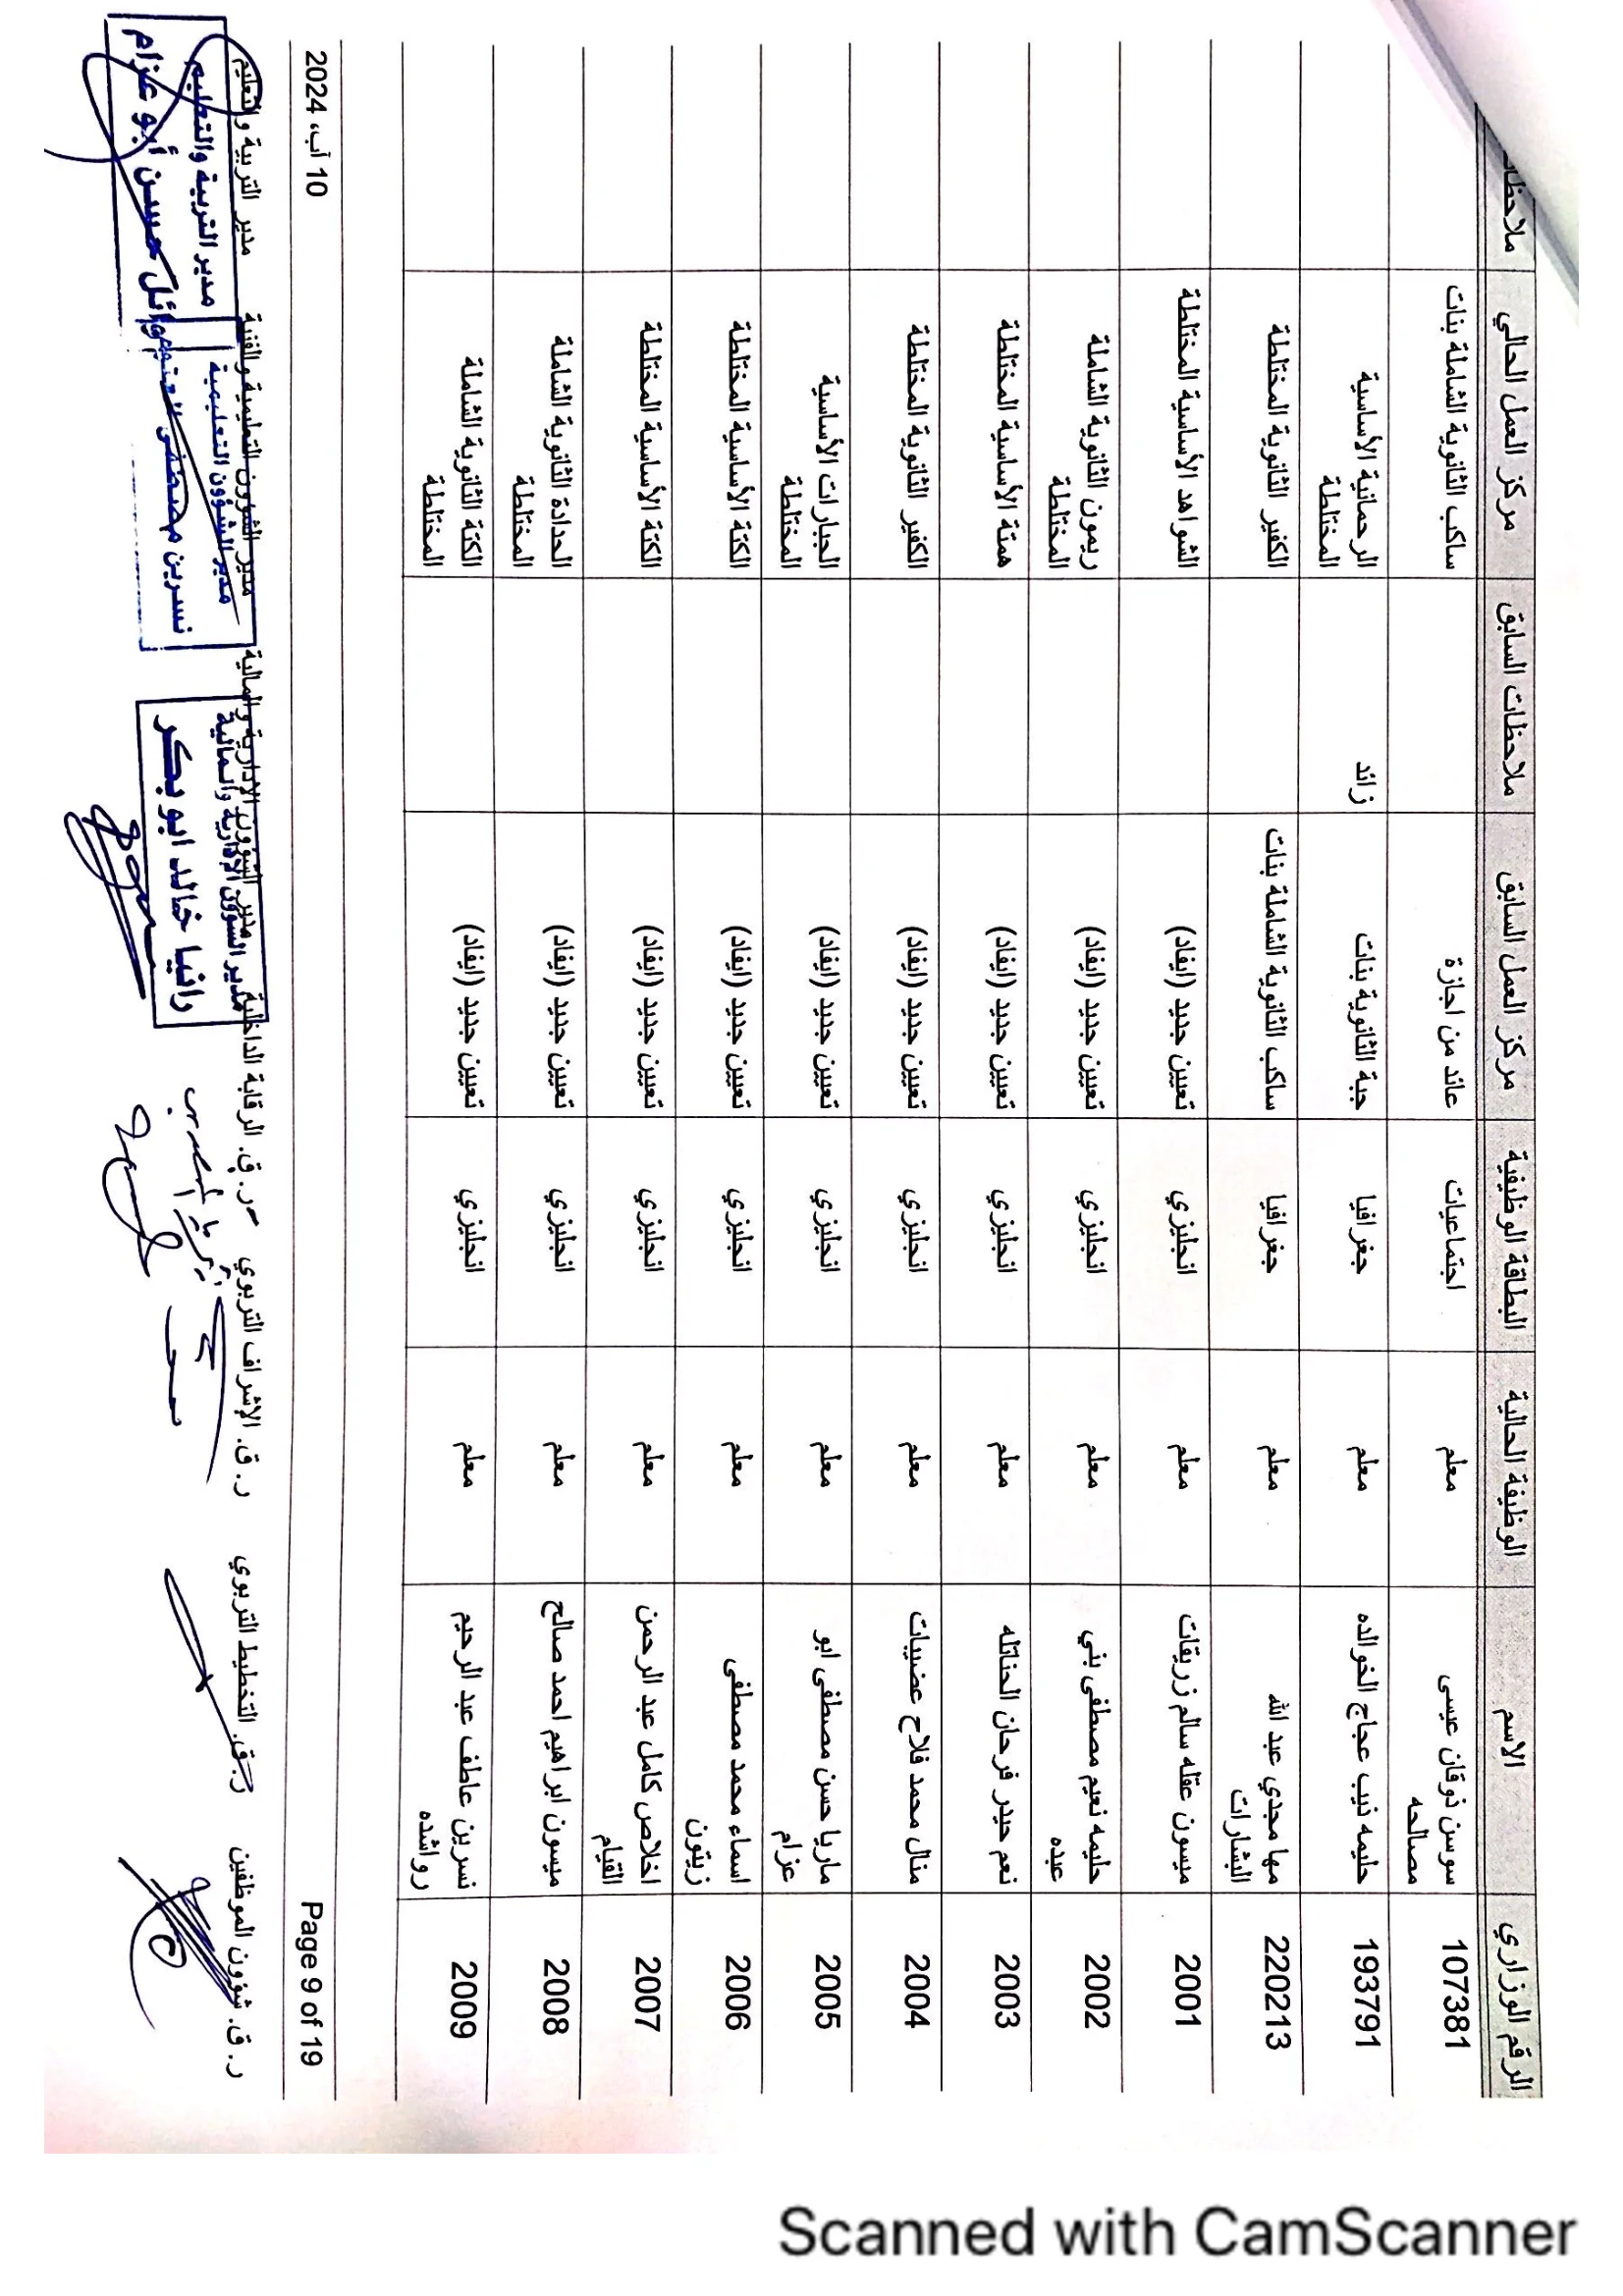 الرقم الوزاري الاسم الوظيفة الحالية البطاقة الوظيفية مركز العمل السابق ملاحظات السابق مركز العمل الحالي
107381 سوسن ذوقان عيسى مصالحه معلم اجتماعيات عائد من اجازة ساكب الثانوية الشاملة بنات
193791 حليمه ذيب عجاج الخوالده معلم جغرافيا جبة الثانوية بنات زائد الرحمانية الأساسية المختلطة
220213 مها مجدي عبد الله البشارات معلم جغرافيا ساكب الثانوية الشاملة بنات الكفير الثانوية المختلطة
2001 ميسون عقله سالم زريقات معلم انجليزي تعيين جديد (ايفاد) الشواهد الأساسية المختلطة
2002 حليمه نعيم مصطفى بني عبده معلم انجليزي تعيين جديد (ايفاد) ريمون الثانوية الشاملة المختلطة
2003 نعم حيدر فرحان الحناتله معلم انجليزي تعيين جديد (ايفاد) همتة الأساسية المختلطة
2004 منال محمد فلاح عضيبات معلم انجليزي تعيين جديد (ايفاد) الكفير الثانوية المختلطة
2005 ماريا حسن مصطفى ابو عزام معلم انجليزي تعيين جديد (ايفاد) الجبارات الأساسية المختلطة
2006 اسماء محمد مصطفى زيتون معلم انجليزي تعيين جديد (ايفاد) الكتة الأساسية المختلطة
2007 اخلاص كامل عبد الرحمن القيام معلم انجليزي تعيين جديد (ايفاد) الكتة الأساسية المختلطة
2008 ميسون ابراهيم احمد صالح معلم انجليزي تعيين جديد (ايفاد) الحدادة الثانوية الشاملة المختلطة
2009 نسرين عاطف عبد الرحيم رواشده معلم انجليزي تعيين جديد (ايفاد) الكتة الثانوية الشاملة المختلطة
Page 9 of 19 10 آب، 2024
ر. ق. شؤون الموظفين ر.ق. التخطيط التربوي ر. ق. الإشراف التربوي ر. ق. الرقابة الداخلية مدير الشؤون الإدارية والمالية مدير الشؤون التعليمية والفنية مدير التربية والتعليم
مدير الشؤون الإدارية والمالية
رانيا خالد ابو بكر
مدير الشؤون التعليمية
نسرين مصطفى
مدير التربية والتعليم
وائل حسن أبو عزام
Scanned with CamScanner